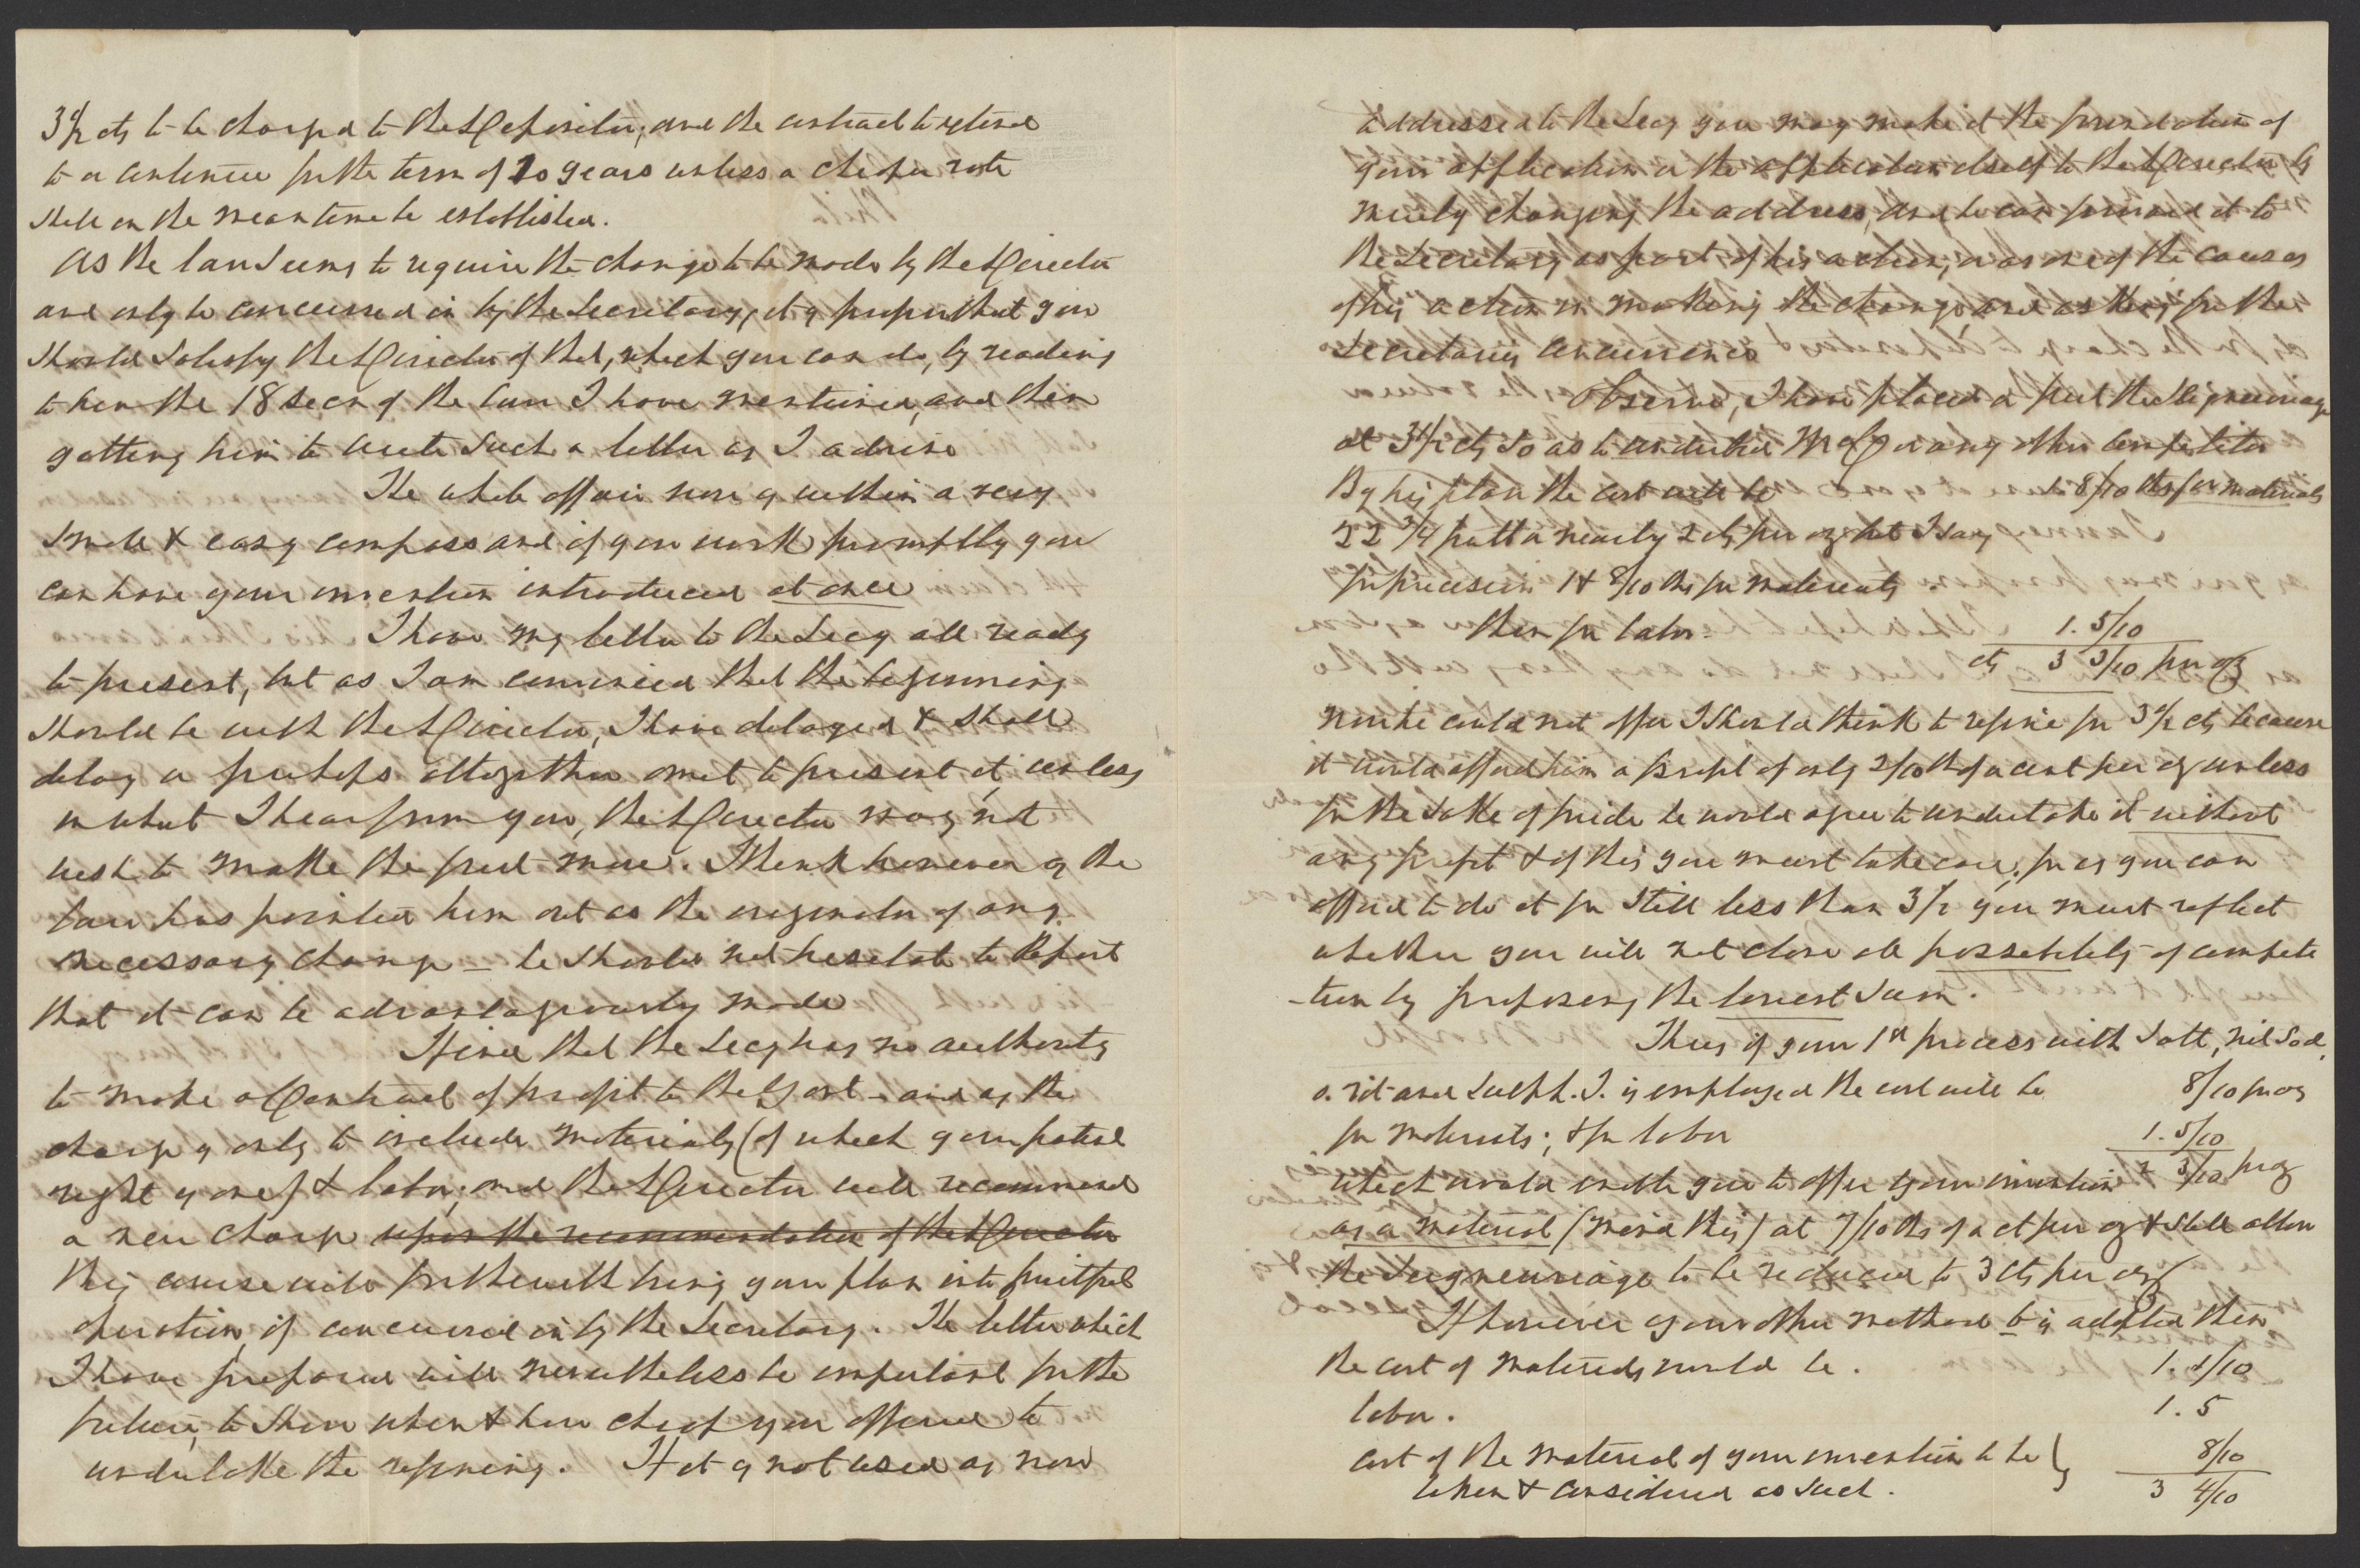 3 1/2 cts to be charged to the Depositor; and the contract to extend
to a continue for the term of 10 years unless a cheaper rate
shall in the meantime be established.
As the law seems to require the change to be made by the Director
and only be concurred in by the Secretary, it is proper that you
should satisfy the Director of that, which you can do, by reading
to him the 18 Secn of the law I have mentioned, and then
getting him to write such a letter as I advise
The whole affair now is within a very
small & easy compass and if you work promptly you
can have your invention introduced at once
I have my letter to the Secy all ready
to present, but as I am convinced that the beginning
should be with the Director, I have delayed & shall
delay or perhaps altogether omit to present it, unless
in what I hear from you, the Director may not
wish to make the first move. I think however as the
law has pointed him out as the originator of any
necessary change — he should not hesitate to Report
that it can be advantageously made
I find that the Secy has no authority
to make a Contract of profit to the Govt - and as the
charge is only to include materials (of which your patent
right is one) & labor, and the Director will recommend
a new charge upon the recommendation of the Director
this course will forthwith bring your plan into fruitful
operation, if concurred in by the Secretary. The letter which
I have prepared will nevertheless be important for the
future, to show when & how cheap you offered to
undertake the refining. If it is not used as now
addressed to the Secy you may make it the foundation of
your application or the application itself to the Director by
merely changing the address, and he can forward it to
the Secretary as part of his action, or as one of the causes
of his action in making the change and asking for the
Secretarys concurrence
Observe, I have placed a feet the Seigneuriage
at 3 1/2 cts so as to underbid McC or any other competitor
By his plan the cost will be 1. 8/10 ths for materials
22 3/4 putt a nearly 2 cts per oz but I say
for precision 1 & 8/10 ths for materials
then for labor. 1. 5/10
cts 3 3/10 per oz
now he could not offer I should think to refine for 3 1/2 cts because
it would afford him a profit of only 2/10 th of a cent per oz unless
for the sake of pride he would agree to undertake it without
any profit & of this you must take care, for as you can
afford to do it for still less than 3 1/2 you must reflect
whether you will not close all possibility of compete
-tion by proposing the lowest sum.
Thus if your 1st process with Salt, nit Sod,
o. vit and Sulph. I. is employed the cost will be 8/10 pr oz
for materials; & for labor 1. 5/10
which would enable you to offer your invention 2 3/10 pr oz
as a material (mind this) at 7/10 ths of a ct per oz & still allow
the Seigneuriage to be reduced to 3 cts per oz
If however your other method b is adopted then
the cost of materials would be. 1. 1/10
labor. 1. 5
cost of the material of your invention to be } 8/10
taken & considered as such. 3 4/10